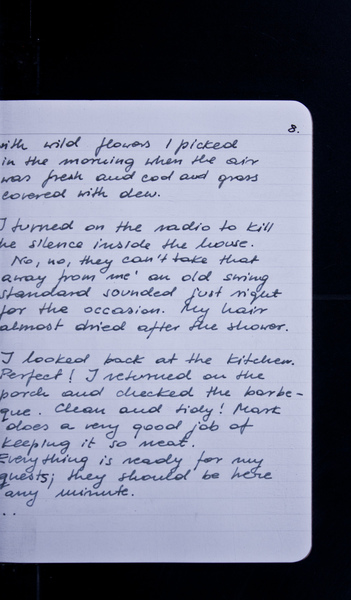 8.
with wild flowers I picked
in the morning when the air
was fresh and cool and grass
covered with dew.
I turned on the radio to kill
he silence inside the house.
No, no, they can't take that
away from me' an old swing
standard sounded just right
for the occasion. My hair
almost dried after the shower.
I looked back at the kitchen.
Perfect! I returned on the
porch and checked the barbe-
que. Clean and tidy! Mark
does a very good job of
keeping it so neat.
Everything is ready for my
guests; they should be here
any minute.
..